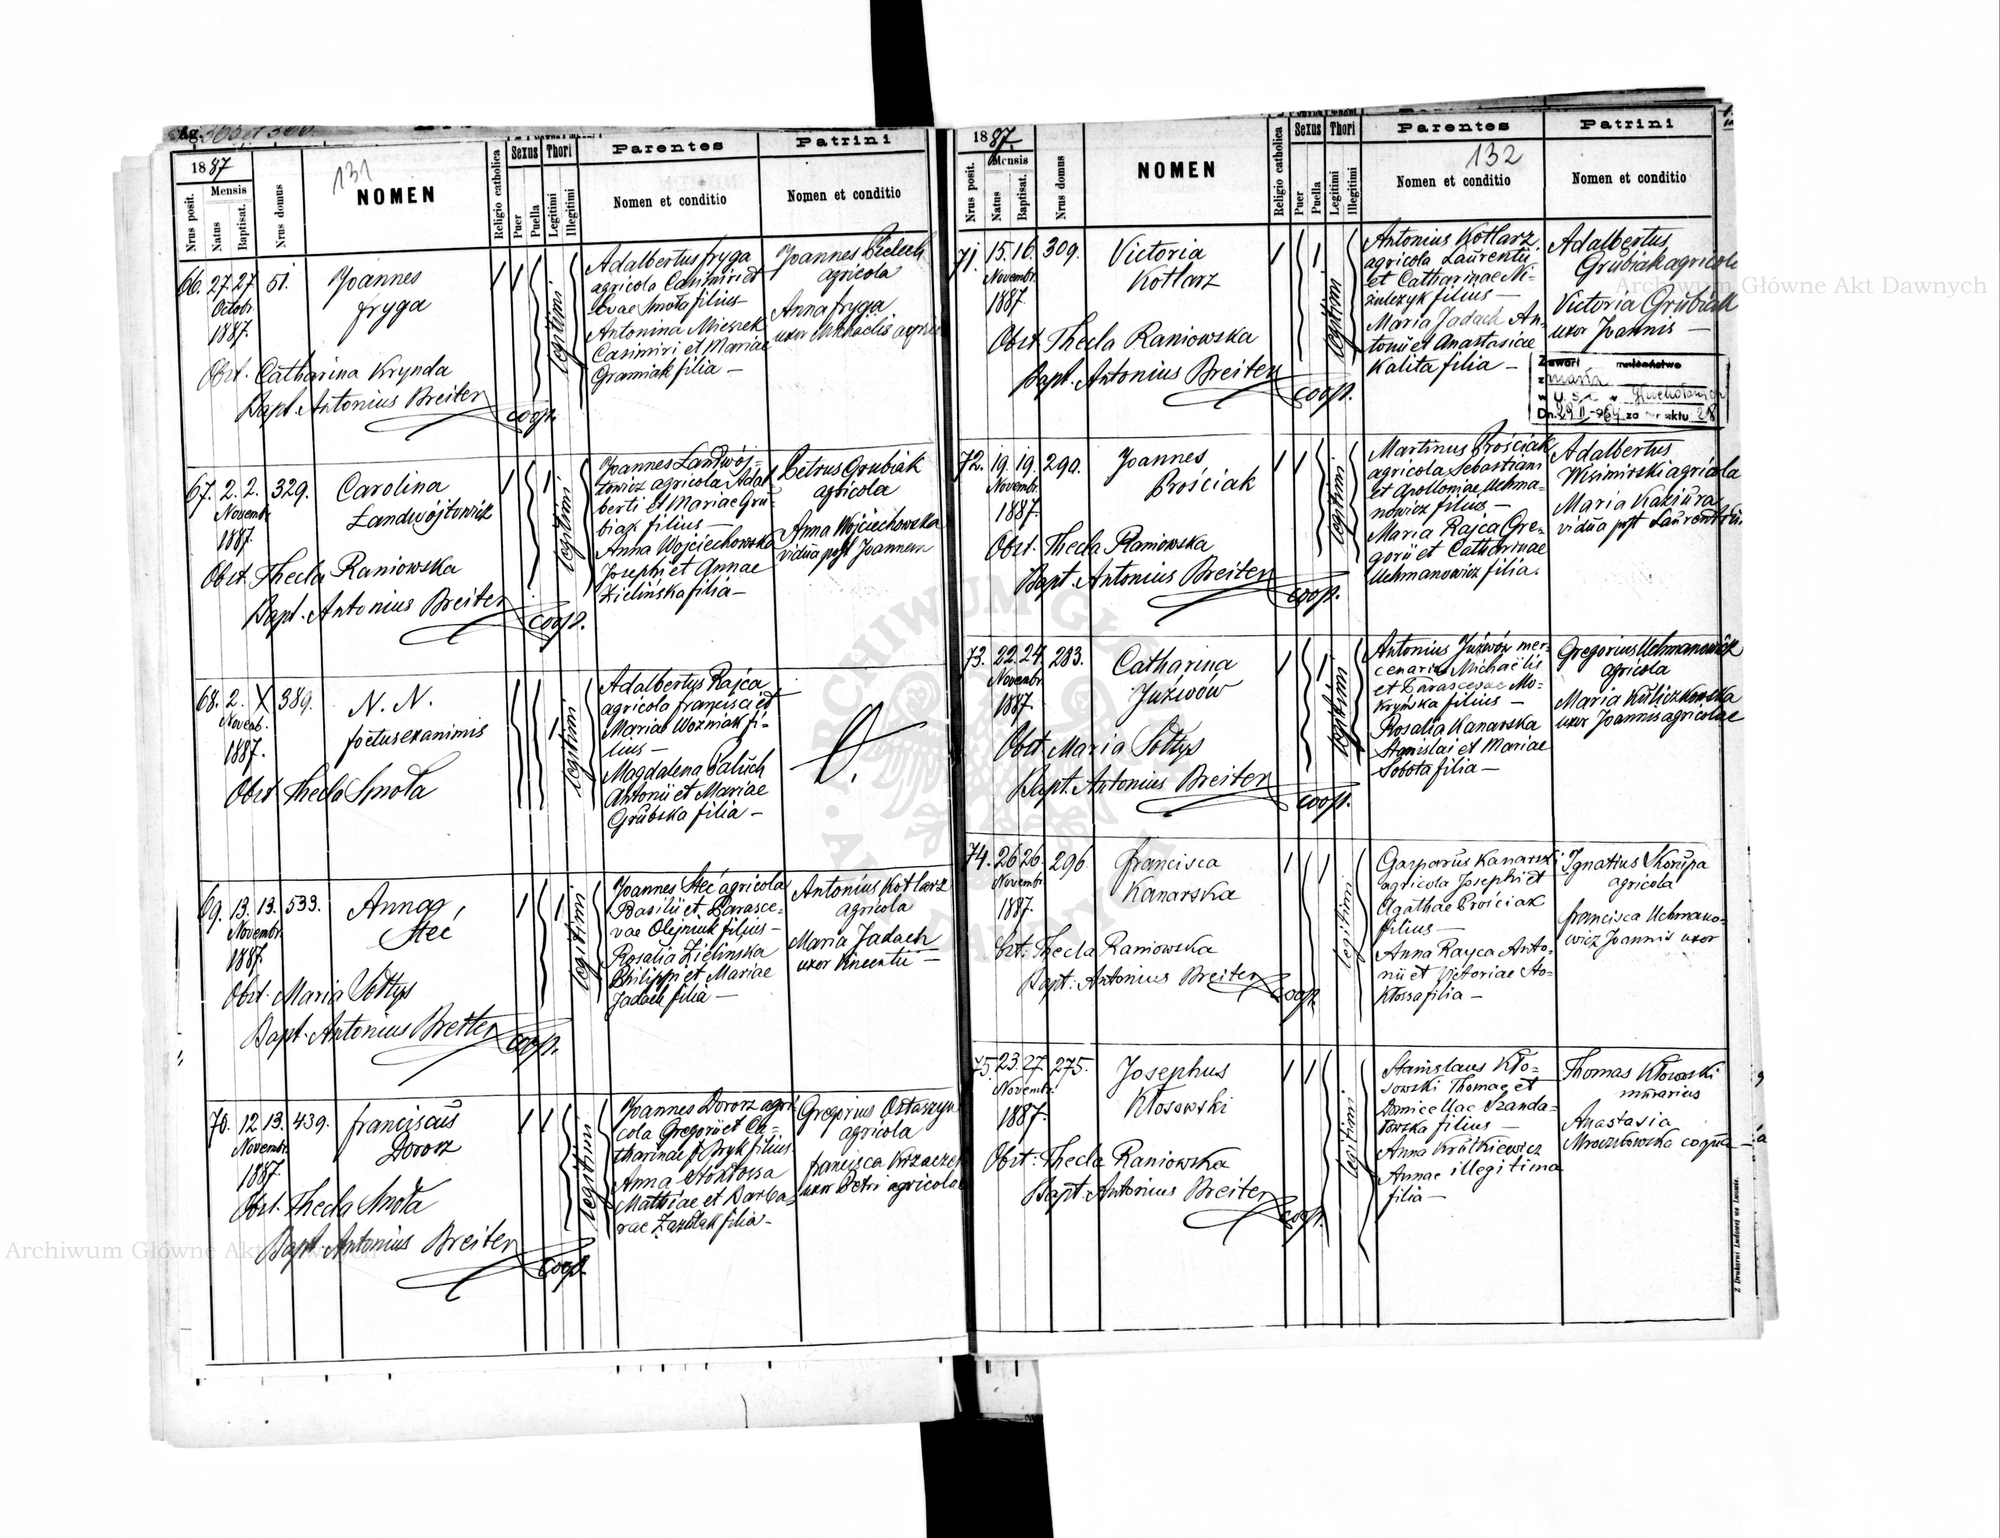 Pag. 365 et 366.
1887
131
Nrus posit.
Mensis
Natus
Baptisat.
Nrus domus
NOMEN
Religio catholica
Sexus
Puer
Puella
Thori
Legitimi
Illegitimi
Parentes
Nomen et conditio
Patrini
Nomen et conditio
66. 27. 27. 51.
Octobr.
1887.
Joannes
Fryga
1 1
legitimi
Adalbertus Fryga
agricola Casimiri et
Evae Smoła filius
Antonina Mieszek
Casimiri et Mariae
Gramiak filia —
Joannes
agricola
Anna Fryga
uxor Michaelis
Obst. Catharina Krynda
Bapt. Antonius Breiter
coop.
67. 2. 2. 329.
Novembr.
1887.
Carolina
Landwójtowicz
1 1
legitimi
Joannes Landwój-
towicz agricola Adal-
berti et Mariae Gru-
biak filius —
Anna Wojciechowska
Josephi et Annae
Zielińska filia —
Petrus Grubiak
agricola
Anna Wojciechowska
vidua post Joannem
Obst. Thecla Raniowska
Bapt. Antonius Breiter
coop.
68. 2. X 389.
Novemb.
1887.
N. N.
foetus exanimis
1
legitimi
Adalbertus Rajca
agricola Francisci et
Mariae Woźniak fi-
lius —
Magdalena Paluch
Antonii et Mariae
Grubska filia —
Obst Thecla Smoła
69. 13. 13. 533.
Novembr.
1887.
Anna
Steć
1 1
legitimi
Joannes Steć agricola
Basilii et Parasce-
vae Olejniuk filius —
Rosalia Zielińska
Philippi et Mariae
Jadach filia —
Antonius Kotlarz
agricola
Maria Jadach
uxor Vincentii —
Obst. Maria Sołtys
Bapt. Antonius Breiter
coop.
70. 12. 13. 439.
Novembr.
1887.
Franciscus
Dorosz
1 1
legitimi
Joannes Dorosz agri-
cola Gregorii et Ca-
tharinae Pryk filius
Anna Stokłossa
Mathiae et Barba-
rae Zazulak filia —
Gregorius Ostaszyn
agricola
Francisca
uxor Petri agricolae
Obst. Thecla Smoła
Bapt. Antonius Breiter
coop.
1887.
132
Nrus posit.
Mensis
Natus
Baptisat.
Nrus domus
NOMEN
Religio catholica
Sexus
Puer
Puella
Thori
Legitimi
Illegitimi
Parentes
Nomen et conditio
Patrini
Nomen et conditio
71. 15. 16. 309.
Novembr.
1887.
Victoria
Kotlarz
1 1
legitimi
Antonius Kotlarz
agricola Laurentii
et Catharinae Ni-
filius —
Maria Jadach An-
tonii et Anastasiae
Kalita filia —
Adalbertus
Grubiak agricola
Victoria Grubiak
uxor Joannis —
Zawarł małżeństwo
zmarła
w U.S.C. w
Dn. za nr aktu 28
Obst. Thecla Raniowska
Bapt. Antonius Breiter
coop.
72. 19. 19. 290.
Novembr.
1887.
Joannes
Prościak
1 1
legitimi
Martinus Prościak
agricola Sebastiani
et Apolloniae Uchma-
nowicz filius —
Maria Rajca Gre-
gorii et Catharinae
Uchmanowicz filia.
Adalbertus
Wiśmirski agricola
Maria Kaziuraz
vidua post Laurentium
Obst. Thecla Raniowska
Bapt. Antonius Breiter
coop.
73. 22. 24. 283.
Novembr.
1887.
Catharina
Juźwów
1 1
legitimi
Antonius Juźwów mer-
cenarius Michaëlis
et Parascevae Mo-
kryńska filius —
Rosalia Kanarska
Stanislai et Mariae
Sobota filia —
Gregorius Uchmanowicz
agricola
Maria Kuliczkowska
uxor Joannis agricolae
Obst. Maria Sołtys
Bapt. Antonius Breiter
coop.
74. 26 26. 296.
Novembr.
1887.
Francisca
Kanarska
1 1
legitimi
Gasparus Kanarski
agricola Josephi et
Agathae Prościak
filius —
Anna Rayca Anto-
nii et Victoriae Sto-
kłossa filia —
Ignatius Skorupa
agricola
Francisca Uchmano-
wicz Joannis uxor
Obst. Thecla Raniowska
Bapt. Antonius Breiter
coop.
75. 23. 27. 275.
Novembr.
1887.
Josephus
Kłosowski
1 1
legitimi
Stanislaus Kło-
sowski Thomae et
Domicellae Szanda-
rowska filius —
Anna Krótkiewicz
Annae illegitima
filia —
Thomas Kłosowski
murarius
Anastasia
Mroczkowska coqua —
Obst. Thecla Raniowska
Bapt. Antonius Breiter
coop.
Z Drukarni Ludowej we Lwowie.
Archiwum Główne Akt Dawnych
Archiwum Główne Akt Dawnych
ARCHIWUM GŁÓWNE AKT DAWNYCH